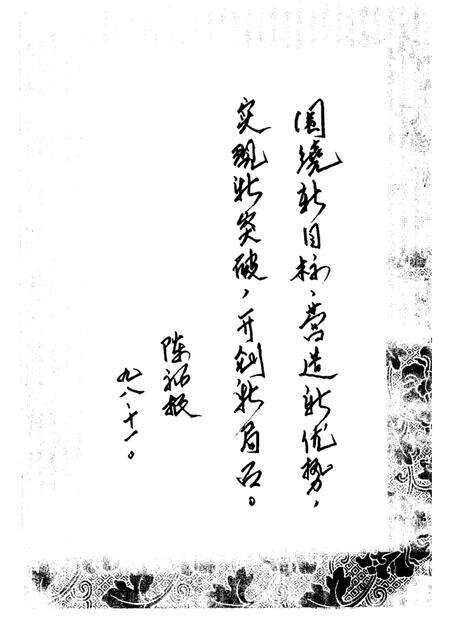 围绕新目标、营造新优势，
实现新突破，开创新局面。
陈
九八.十一。